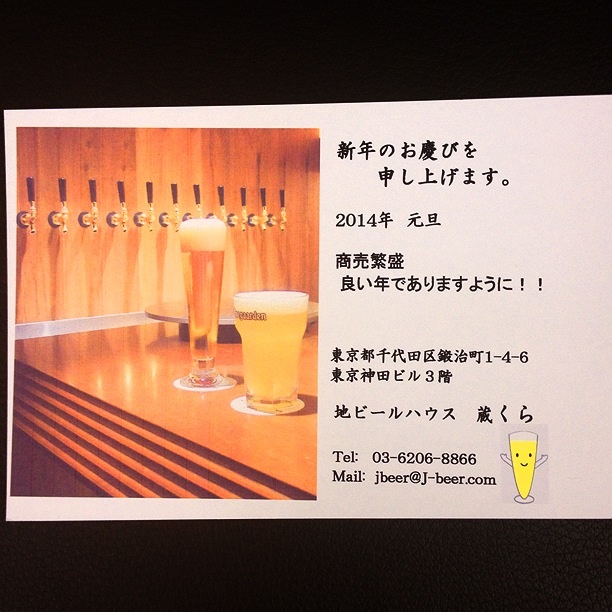 新年のお慶びを
申し上げます。
2014年 元旦
商売繁盛
良い年でありますように！！
東京都千代田区鍛治町1-4-6
東京神田ビル３階
地ビールハウス 蔵くら
Tel: 03-6206-8866
Mail: jbeer@J-beer.com